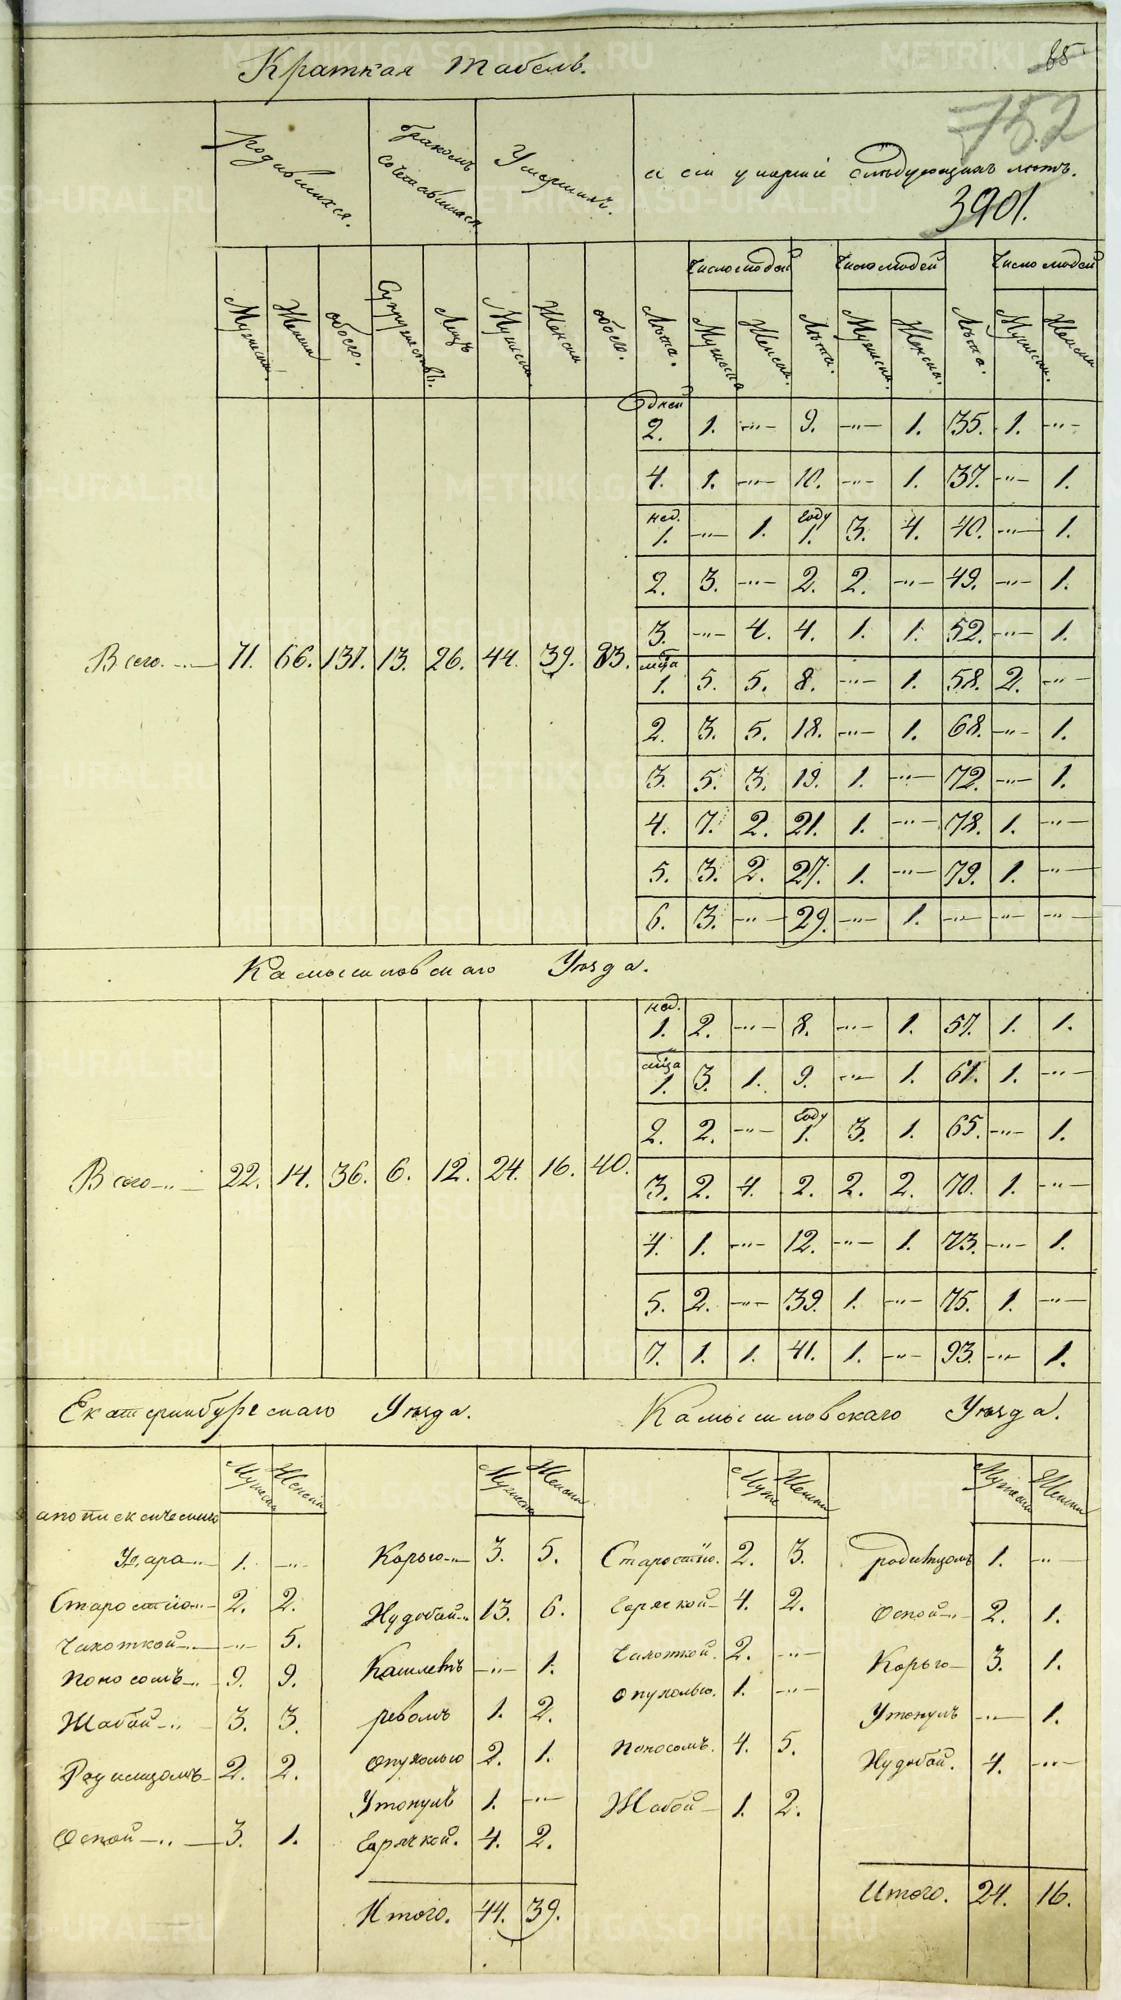 85
Краткая табель.
752
родившихся. бракомъ сочетавшихся Умершихъ. а сіи умершіе слѣдующихъ лѣтъ.
3901.
Число людей Число людей Число людей
Мужеска. Женска обоего. Супружествъ. Лицъ Мужеска. Женска обоего. Лѣта. Мужеска Женска. Лѣта. Мужеска. Женска. Лѣта. Мужеска. Женска
дней
2. 1. -„- 9. -„- 1. 35. 1. -„-
4. 1. -„- 10. -„- 1. 37. -„- 1.
нед. 1. -„- 1. году 1. 3. 4. 40. -„- 1.
2. 3. -„- 2. 2. -„- 49. -„- 1.
3. -„- 4. 4. 1. 1. 52. -„- 1.
Всего.-„- 71. 66. 137. 13. 26. 44. 39. 83.
мца 1. 5. 5. 8. -„- 1. 58. 2. -„-
2. 3. 5. 18. -„- 1. 68. -„- 1.
3. 5. 3. 19. 1. -„- 72. -„- 1.
4. 7. 2. 21. 1. -„- 78. 1. -„-
5. 3. 2. 27. 1. -„- 79. 1. -„-
6. 3. -„- 29. -„- 1. -„- -„- -„-
Камышловскаго Уѣзда.
нед. 1. 2. -„- 8. -„- 1. 57. 1. 1.
мца 1. 3. 1. 9. -„- 1. 61. 1. -„-
2. 2. -„- году 1. 3. 1. 65. -„- 1.
Всего-„- 22. 14. 36. 6. 12. 24. 16. 40.
3. 2. 4. 2. 2. 2. 70. 1. -„-
4. 1. -„- 12. -„- 1. 73. -„- 1.
5. 2. -„- 39. 1. -„- 75. 1. -„-
7. 1. 1. 41. 1. -„- 93. -„- 1.
Екатеринбургскаго Уѣзда. Камышловскаго Уѣзда.
Мужеска Женска Мужеска Женска Муже Женска Мужеска Женска
апоплексическаго
Удара-„- 1. -„-
Старостію-„- 2. 2.
Чахоткой-„- -„- 5.
Поносомъ-„- 9. 9.
Жабой-„- 3. 3.
Родимцомъ- 2. 2.
Оспой-„- 3. 1.
Корью-„- 3. 5.
Худобой-„- 13. 6.
Кашлемъ -„- 1.
ревомъ 1. 2.
Опухолью 2. 1.
Утонулъ 1. -„-
Горячкой. 4. 2.
Итого. 44. 39.
Старостію. 2. 3.
Горячкой- 4. 2.
Чахоткой. 2. -„-
Опухолью. 1. -„-
Поносомъ. 4. 5.
Жабой- 1. 2.
родимцомъ 1. -„-
Оспой-„- 2. 1.
Корью- 3. 1.
Утонулъ -„- 1.
Худобой. 4. -„-
Итого. 24. 16.
METRIKI.GASO-URAL.RU